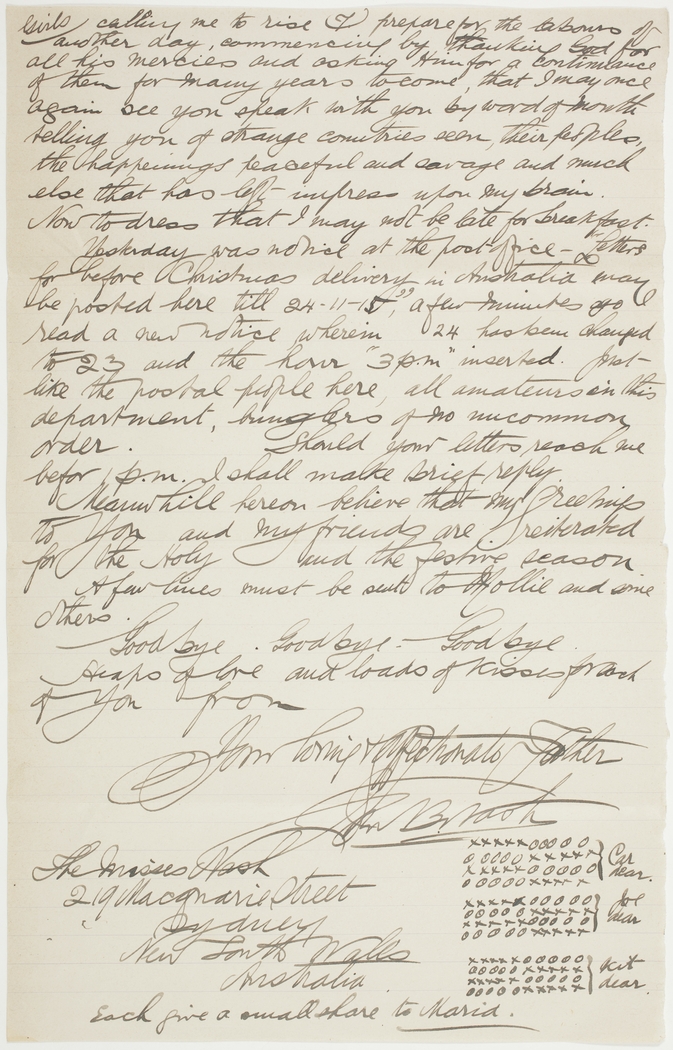 Girls calling me to rise & prepare for the labours of
another day, commencing by thanking God for
all his mercies and asking Him for a continuance
of them for many years to come, that I may once
again see you speak with you by word of mouth
telling you of strange countries seen, their peoples,
the happenings peaceful and savage and much
else that has left impress upon my brain.
Now to dress that I may not be late for breakfast.
Yesterday was notice at the post office - letters
for before Christmas delivery in Australia may
be posted here till 24-11-15", a few minutes ago I
read a new notice wherein 24 has been changed
to 23 and the hour "3 p.m" inserted. Just
like the postal people here, all amateurs in this
department, bunglers of no uncommon
order. Should your letters reach me
befor 1 p.m. I shall make brief reply
Meanwhill hereon believe that my Greetings
to You and my friends are reiterated
for the Holy and the festive season
A few lines must be sent to Mollie and some
others.
Good bye. Good bye - Good bye
Heaps of love and loads of kisses for each
of You from
Your loving & affectionate Father
John B Nash
The Misses Nash
219 Macquarie Street
Sydney
New South Walls
Australia
xxxxxooooo
oooooxxxxx
xxxxxooooo
oooooxxxxx
Car dear.
xxxxxooooo
oooooxxxxx
xxxxxooooo
oooooxxxxx
Joe dear
xxxxxooooo
oooooxxxxx
xxxxxooooo
oooooxxxxx
Kit dear.
Each give a small share to Maria.